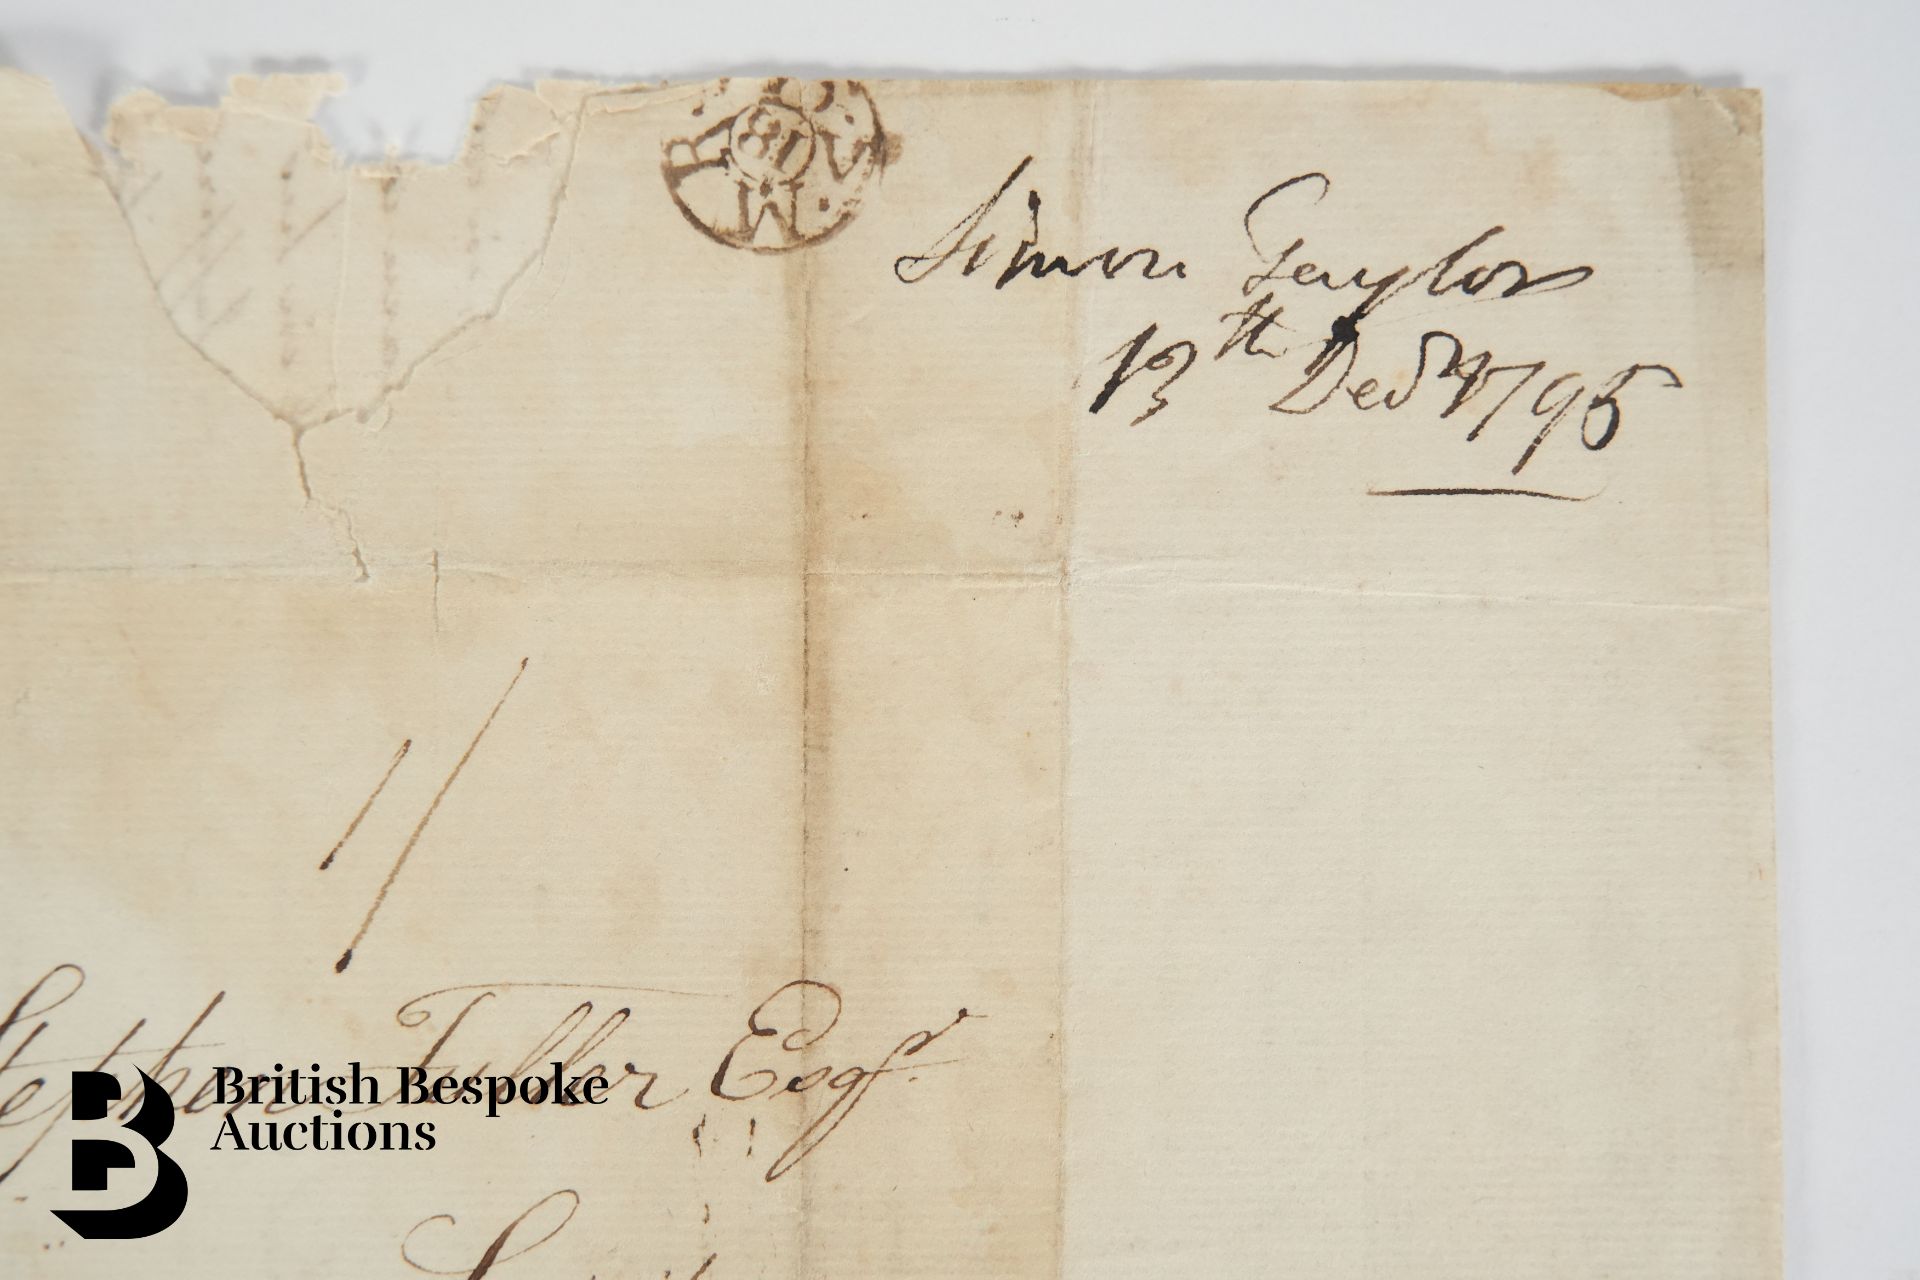 MAR
18
Simon Taylor
13th Decr 1795
11
Stephen Fuller Esqr
British Bespoke
Auctions